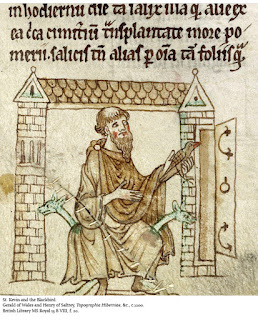 in hodiernū diē tā salix illa q̃ alie ex
ea circa cimiteriū transplantate more po
merii. salicis tñ alias ꝑ oīa tā foliis q̃
St. Kevin and the Blackbird
Gerald of Wales and Henry of Saltrey, Topographia Hibernica, &c., c.1200.
British Library MS Royal 13 B VIII, f. 20.